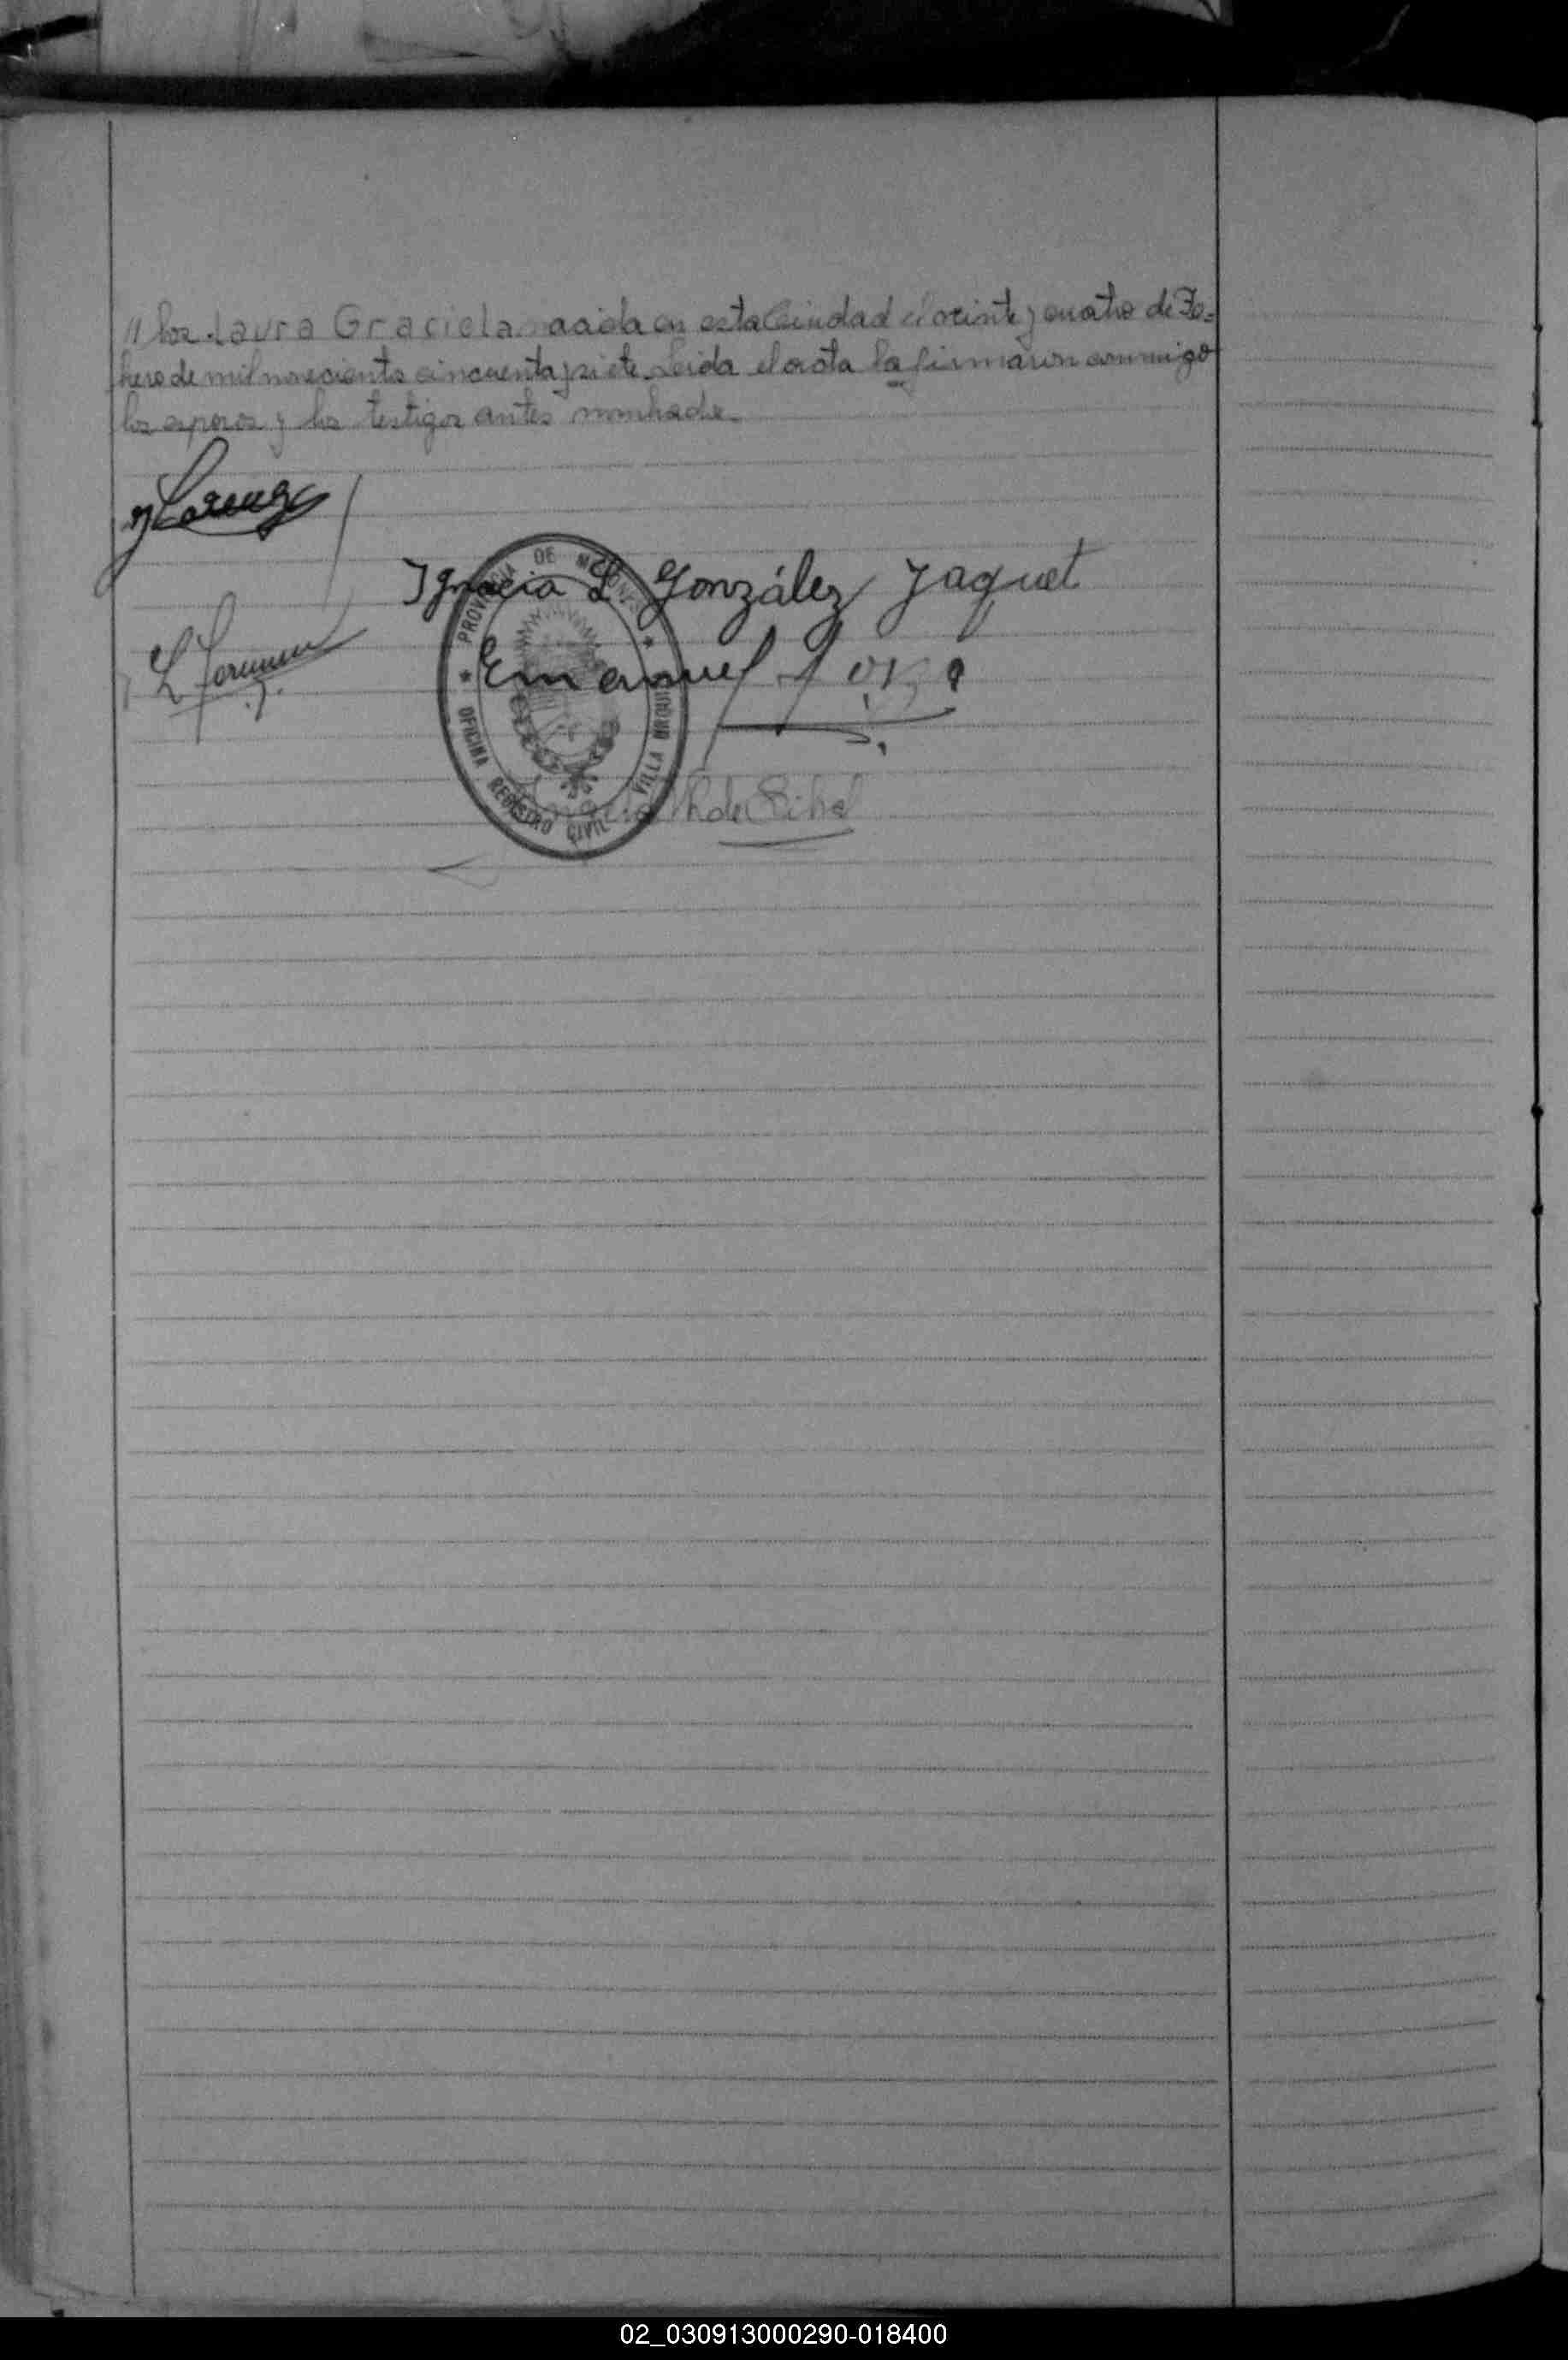 // los. Laura Graciela nacida en esta Ciudad el veinte y cuatro de Fe=
brero de mil novecientos cincuenta y siete. Leida el acta la firmaron conmigo
los esposos y los testigos antes nombrados.
Ignacia L González Jaquet
Emanuel
PROVINCIA DE MISIONES
OFICINA REGISTRO CIVIL VILLA URQUIZA
de
02_030913000290-018400